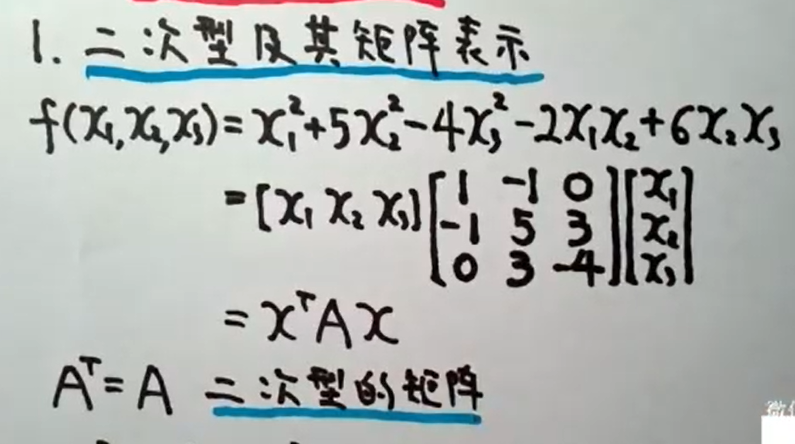 1. 二次型及其矩阵表示
f(x₁,x₂,x₃)=x₁²+5x₂²-4x₃²-2x₁x₂+6x₂x₃
=[x₁ x₂ x₃][1 -1 0][x₁]
[-1 5 3][x₂]
[0 3 -4][x₃]
=xᵀAx
Aᵀ=A 二次型的矩阵